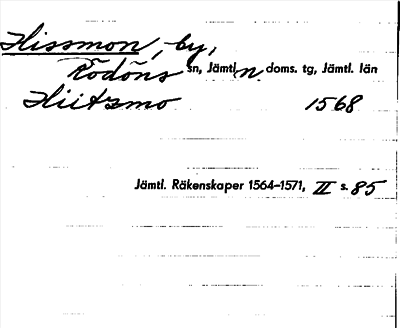 Hissmon, by,
Rödöns sn, Jämtl. n doms. tg, Jämtl. län
Hiitzmo 1568
Jämtl. Räkenskaper 1564-1571, II s. 85